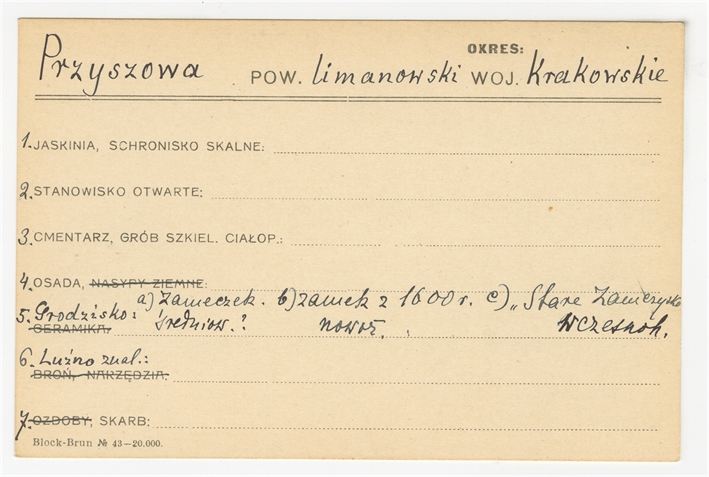 OKRES:
Przyszowa POW. limanowski WOJ. Krakowskie
1. JASKINIA, SCHRONISKO SKALNE:
2. STANOWISKO OTWARTE:
3. CMENTARZ, GRÓB SZKIEL. CIAŁOP.:
4. OSADA, NASYPY ZIEMNE:
a) Zameczek. b) zamek z 1600 r. c) „Stare Zamczysko
5. Grodzisko: średniow.? nowoż. wczesnoh.
CERAMIKA:
6. Luźno znal.:
BROŃ, NARZĘDZIA:
7. OZDOBY, SKARB:
Block-Brun № 43—20.000.